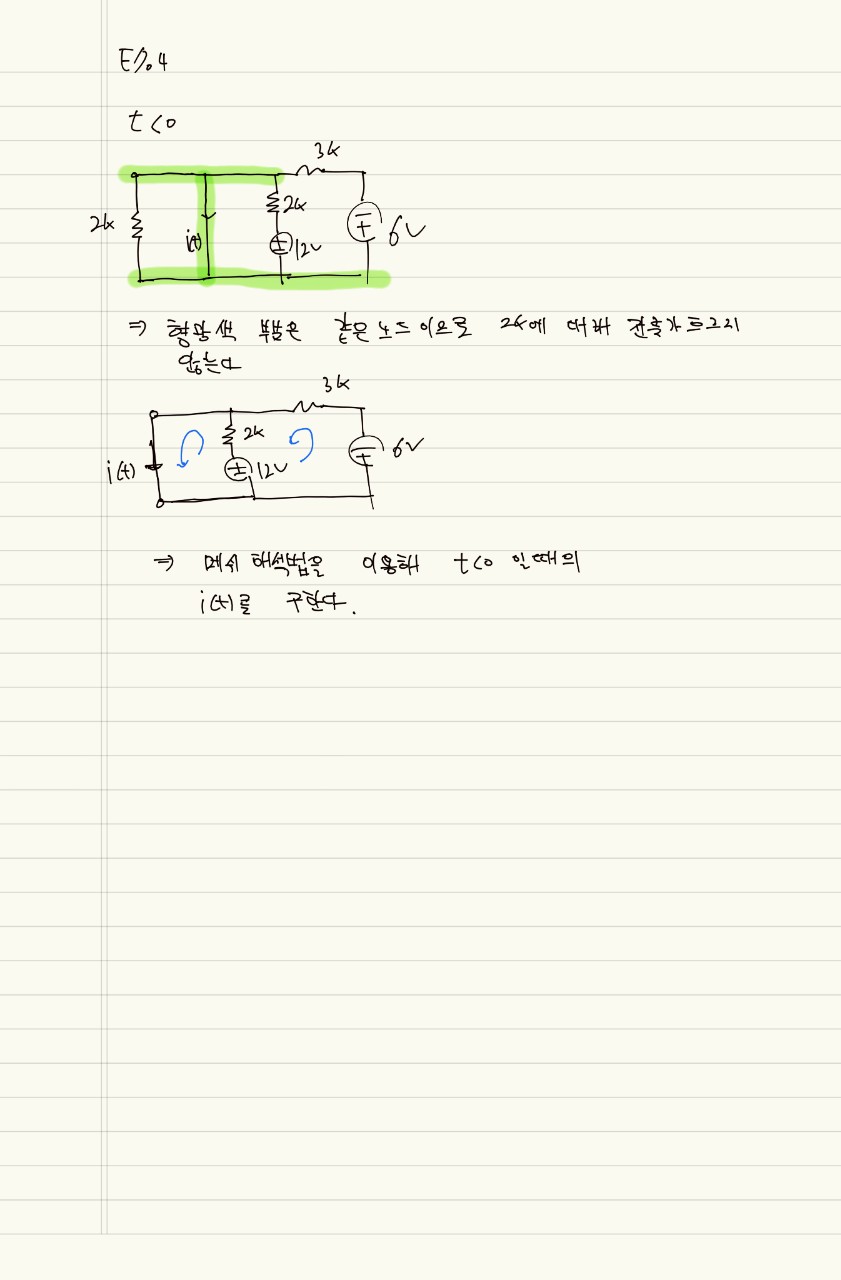 E7.4
t<0
3k
2k
2k
i(t)
12V
6V
⇒ 형광색 부분은 같은 노드 이므로 2k에 대해 전류가 흐르지
않는다
3k
2k
i(t)
12V
6V
⇒ 메쉬 해석법을 이용해 t<0 일때의
i(t)를 구한다.